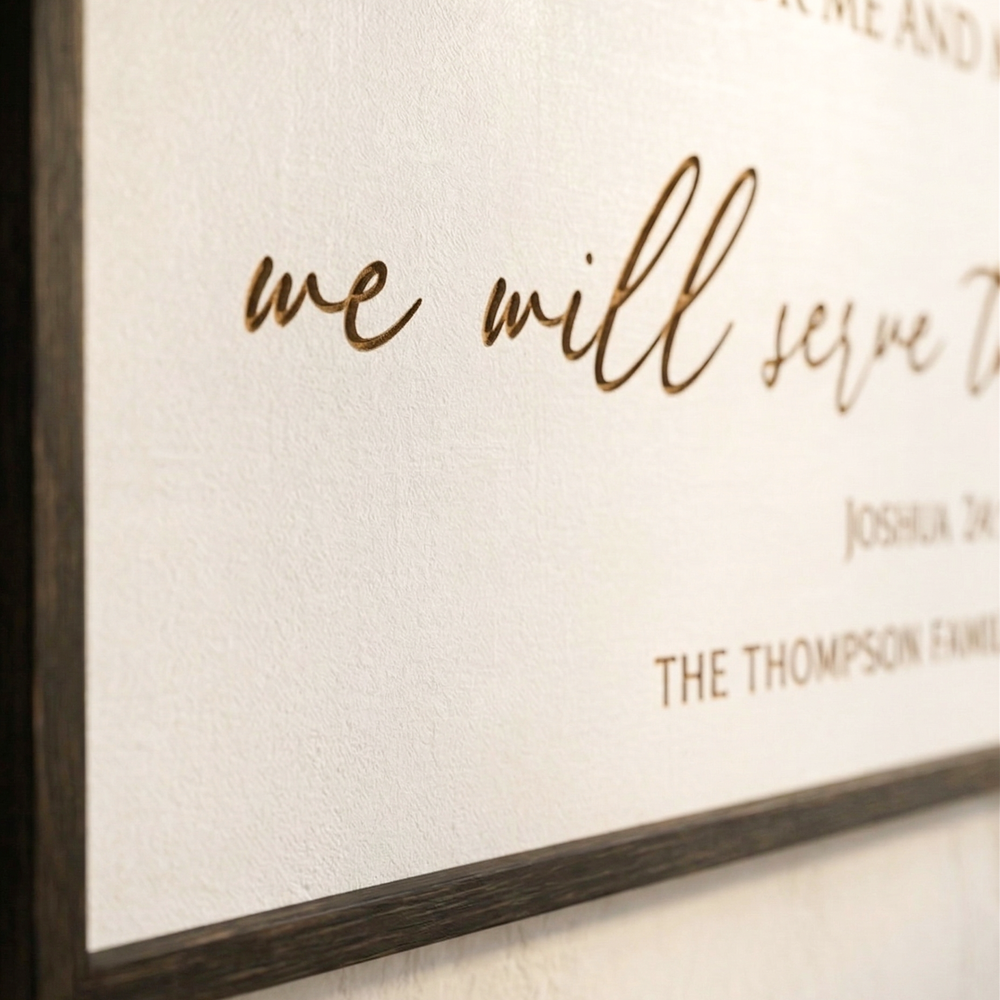 ME AND
we will serve
JOSHUA 24
THE THOMPSON